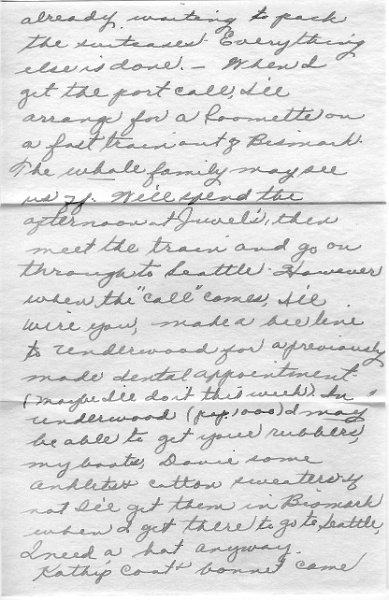 already, waiting to pack
the suitcases. Everything
else is done. — When I
get the port call, I'll
arrange for a Roomette on
a fast train out of Bismark.
The whole family may see
us off. We'll spend the
afternoon at Juwel's, then
meet the train and go on
through to Seattle. However
when the "call" comes, I'll
wire you, make a bee line
to Underwood for a previously
made dental appointment.
(Maybe I'll do it this week). In
Underwood (pop. 1000) I may
be able to get your rubbers,
my boots, Davie some
anklets & cotton sweaters. If
not I'll get them in Bismark
when I get there to go to Seattle,
I need a hat anyway.
Kathip coat & bonnet came